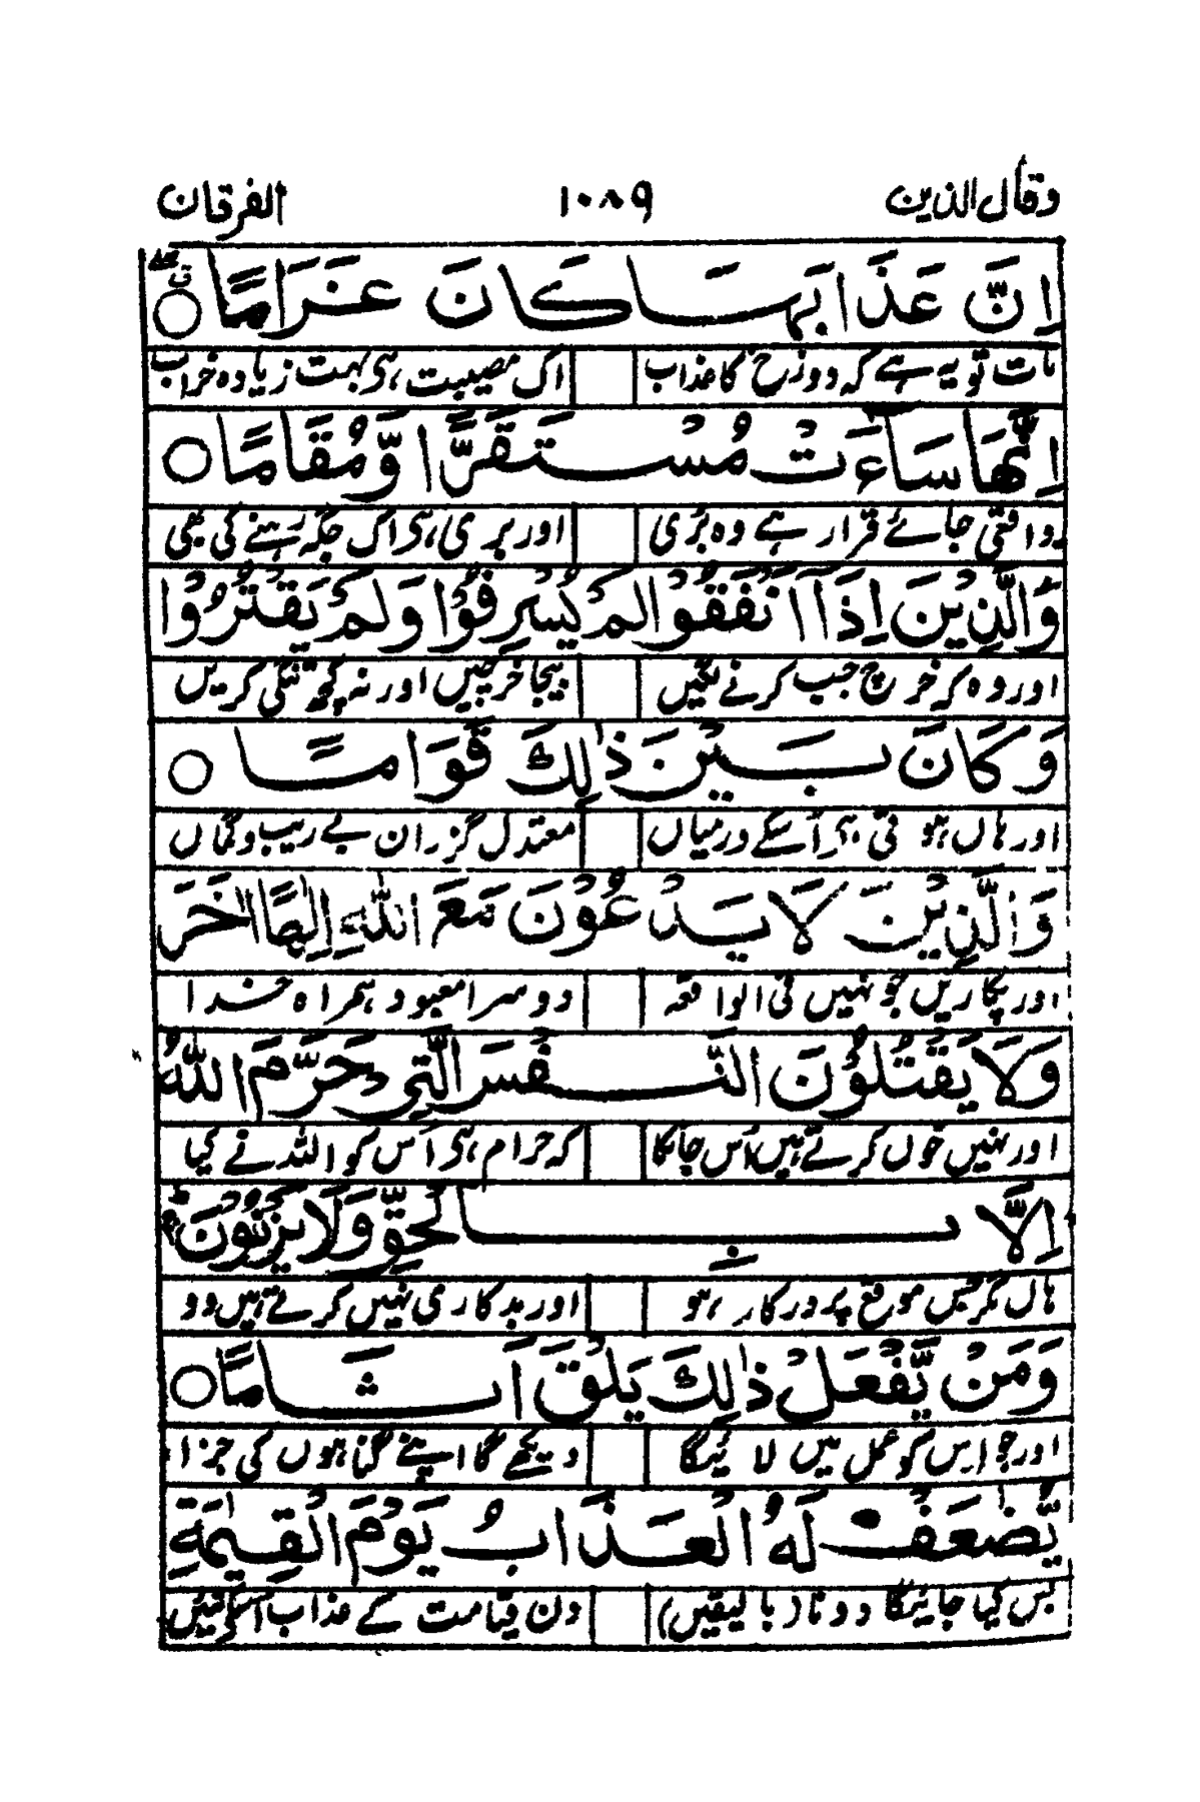 وقال الذین ۱۰۸۹ الفرقان
اِنَّ عَذَابَهَا كَانَ غَرَامًا ○
بات تو یہ ہے کہ دوزخ کا عذاب اک مصیبت ہی بہت زیادہ خراب
اِنَّهَا سَآءَتْ مُسْتَقَرًّا وَّمُقَامًا ○
واقعی جائے قرار ہے وہ بُری اور بری ہی اک جگہ رہنے کی بھی
وَالَّذِيْنَ اِذَآ اَنْفَقُوْا لَمْ يُسْرِفُوْا وَلَمْ يَقْتُرُوْا
اور وہ کہ خرچ جب کرنے لگیں بیجا خرچیں اور نہ کچھ تنگی کریں
وَكَانَ بَيْنَ ذٰلِكَ قَوَامًا ○
اور ہاں ہو فی ہر اُسکے درمیاں معتدل گزران بے ریب و گماں
وَالَّذِيْنَ لَا يَدْعُوْنَ مَعَ اللّٰهِ اِلٰهًا اٰخَرَ
اور پکاریں جو نہیں فی الواقعہ دوسرا معبود ہمراہ خدا
وَلَا يَقْتُلُوْنَ النَّفْسَ الَّتِيْ حَرَّمَ اللّٰهُ
اور نہیں خوں کرتے ہیں اُس جاں کا کہ حرام ہی اُس کو اللہ نے کیا
اِلَّا بِالْحَقِّ وَلَا يَزْنُوْنَ
ہاں مگر جس موقع پر درکار ہو اور بدکاری نہیں کرتے ہیں وو
وَمَنْ يَّفْعَلْ ذٰلِكَ يَلْقَ اَثَامًا ○
اور جو اِس کو عمل میں لائیگا دیکھے گا اپنے گناہوں کی جزا
يُّضٰعَفْ لَهُ الْعَذَابُ يَوْمَ الْقِيٰمَةِ
بس کیا جائیگا دونا (بالیقیں) دن قیامت کے عذاب اسکے تئیں